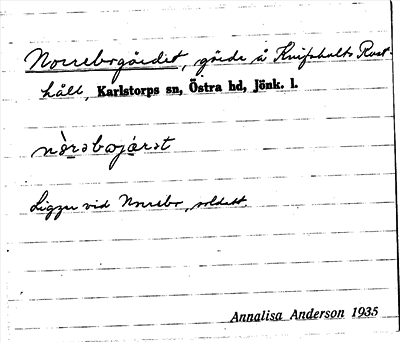 Norrebogärdet, gärde å Knifshults Rust-
håll, Karlstorps sn, Östra hd, Jönk. l.
Ligger vid Norrebo, soldatt.
Annalisa Anderson 1935